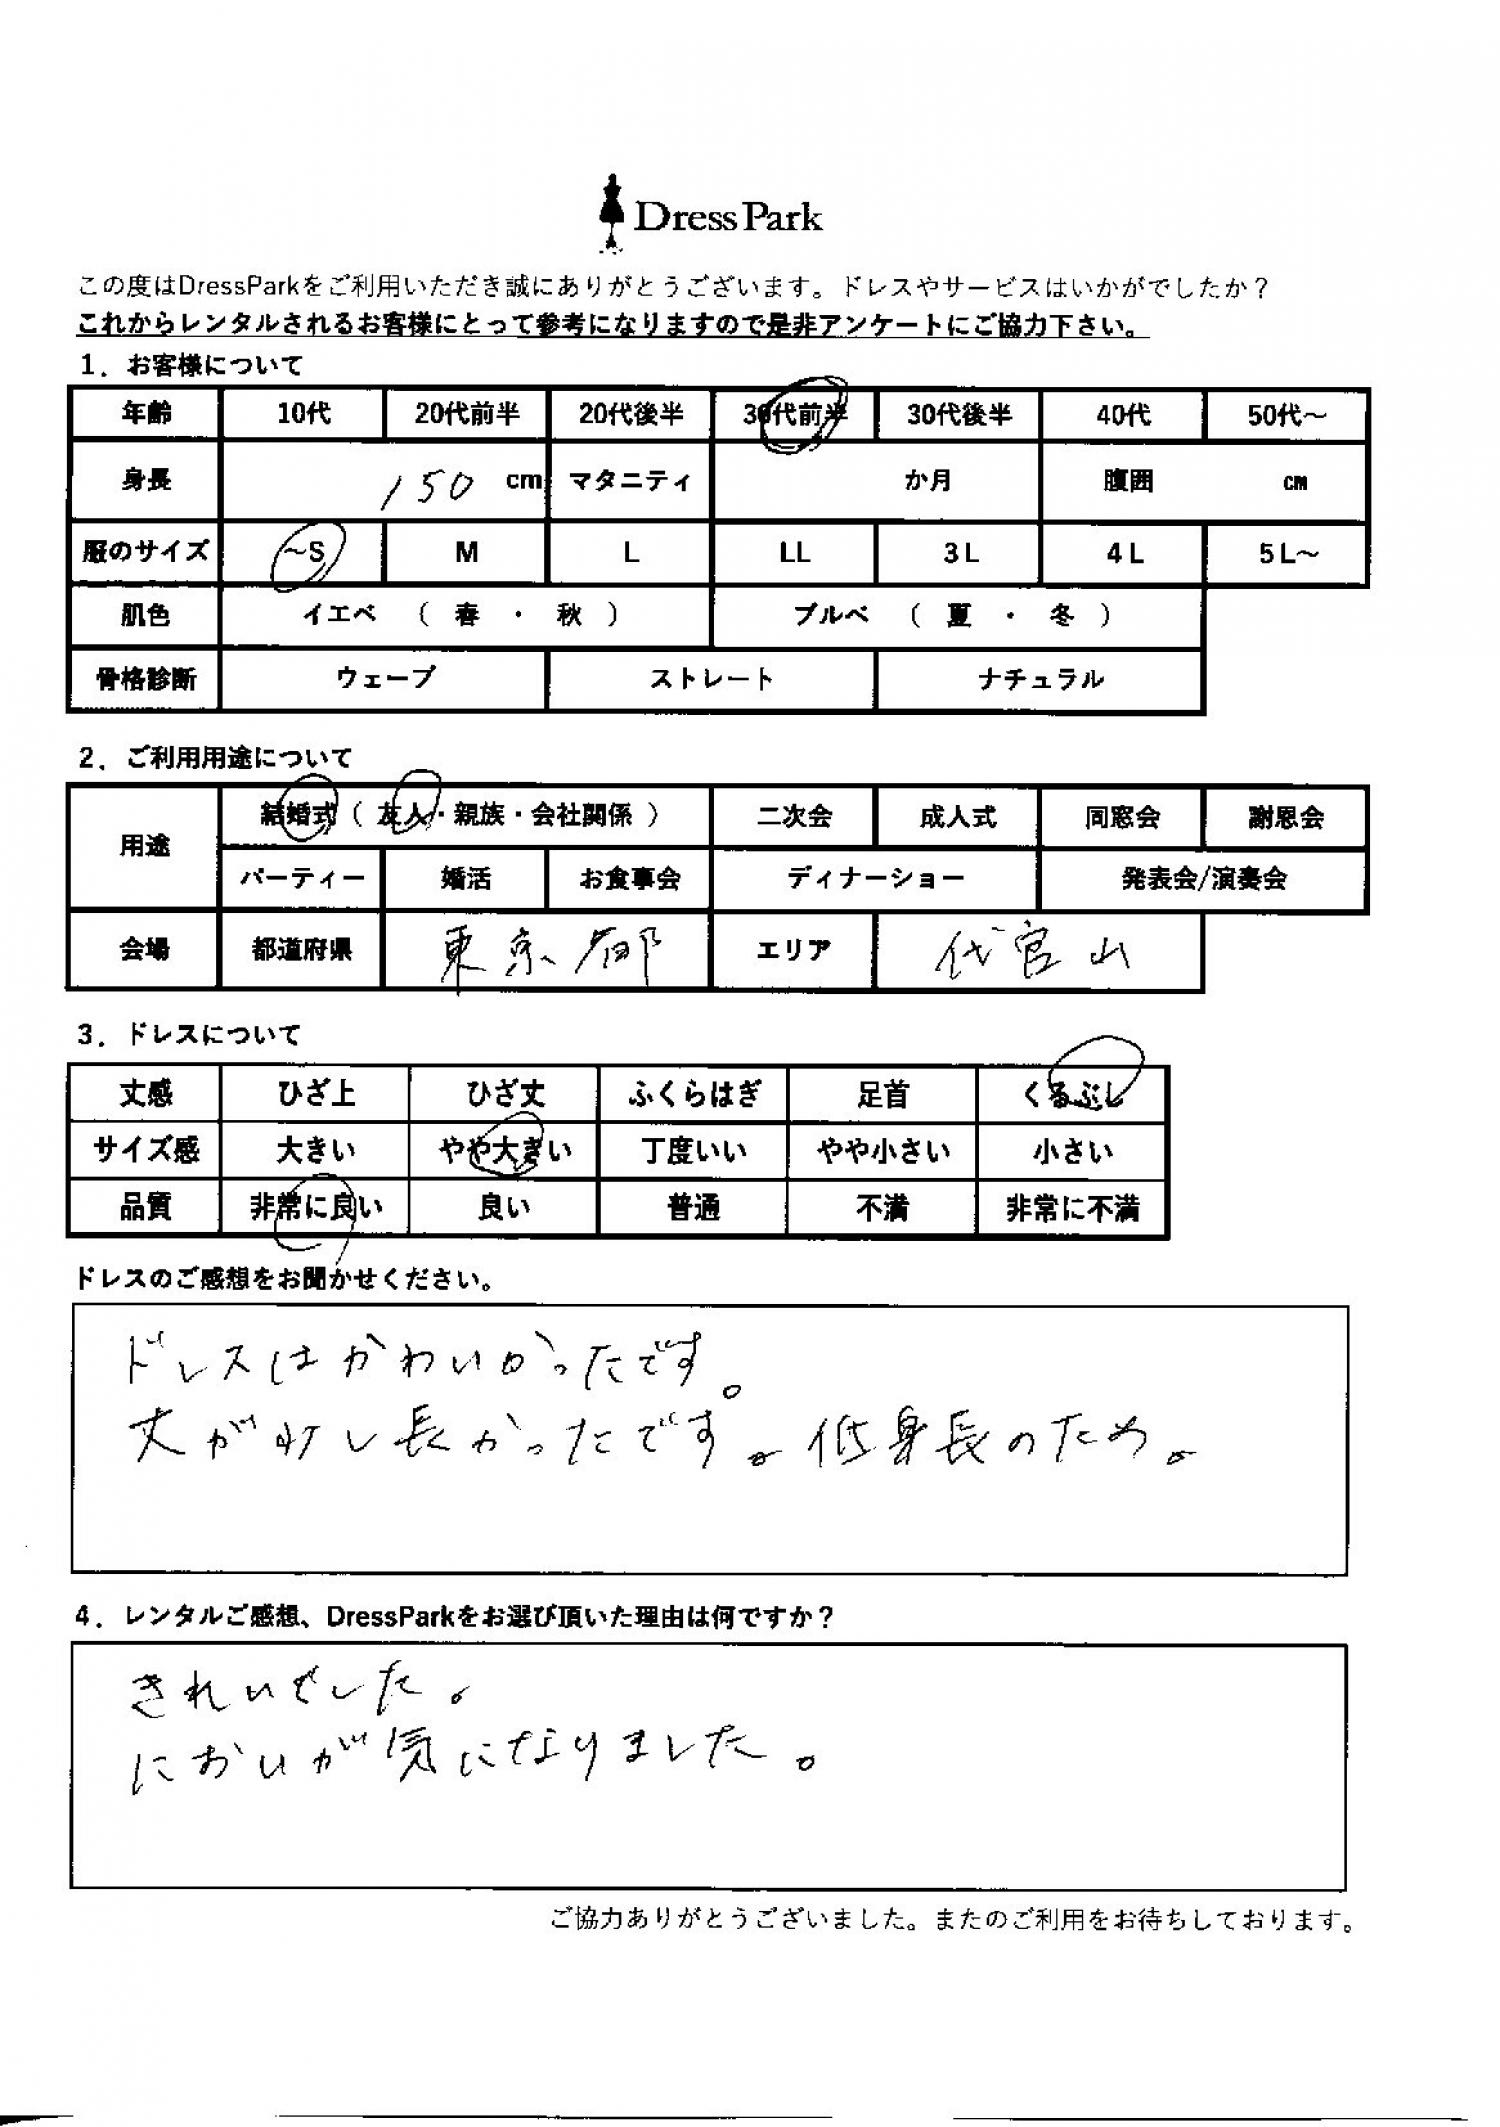 Dress Park
この度はDressParkをご利用いただき誠にありがとうございます。ドレスやサービスはいかがでしたか？
これからレンタルされるお客様にとって参考になりますので是非アンケートにご協力下さい。
1．お客様について
年齢 10代 20代前半 20代後半 30代前半 30代後半 40代 50代～
身長 150 cm マタニティ か月 腹囲 cm
服のサイズ ～S M L LL 3L 4L 5L～
肌色 イエベ （ 春 ・ 秋 ） ブルベ （ 夏 ・ 冬 ）
骨格診断 ウェーブ ストレート ナチュラル
2．ご利用用途について
用途 結婚式（ 友人・親族・会社関係 ） 二次会 成人式 同窓会 謝恩会
パーティー 婚活 お食事会 ディナーショー 発表会/演奏会
会場 都道府県 東京都 エリア 代官山
3．ドレスについて
丈感 ひざ上 ひざ丈 ふくらはぎ 足首 くるぶし
サイズ感 大きい やや大きい 丁度いい やや小さい 小さい
品質 非常に良い 良い 普通 不満 非常に不満
ドレスのご感想をお聞かせください。
ドレスはかわいかったです。
丈が少し長かったです。低身長のため。
4．レンタルご感想、DressParkをお選び頂いた理由は何ですか？
きれいでした。
においが気になりました。
ご協力ありがとうございました。またのご利用をお待ちしております。